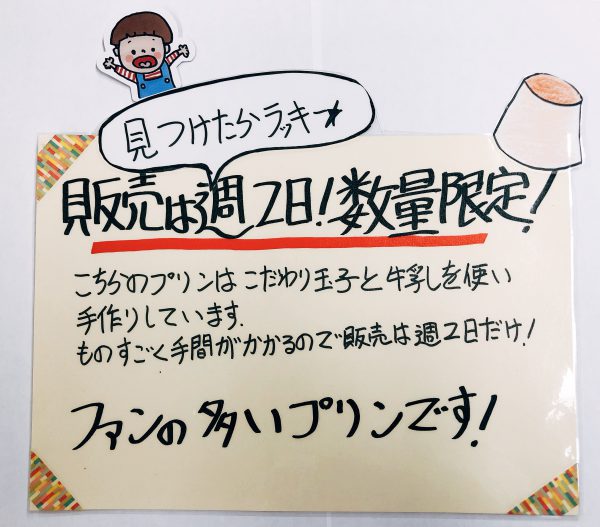 見つけたらラッキー★
販売は週2日!数量限定!
こちらのプリンはこだわり玉子と牛乳しを使い
手作りしています.
ものすごく手間がかかるので販売は週2日だけ!
ファンの多いプリンです!